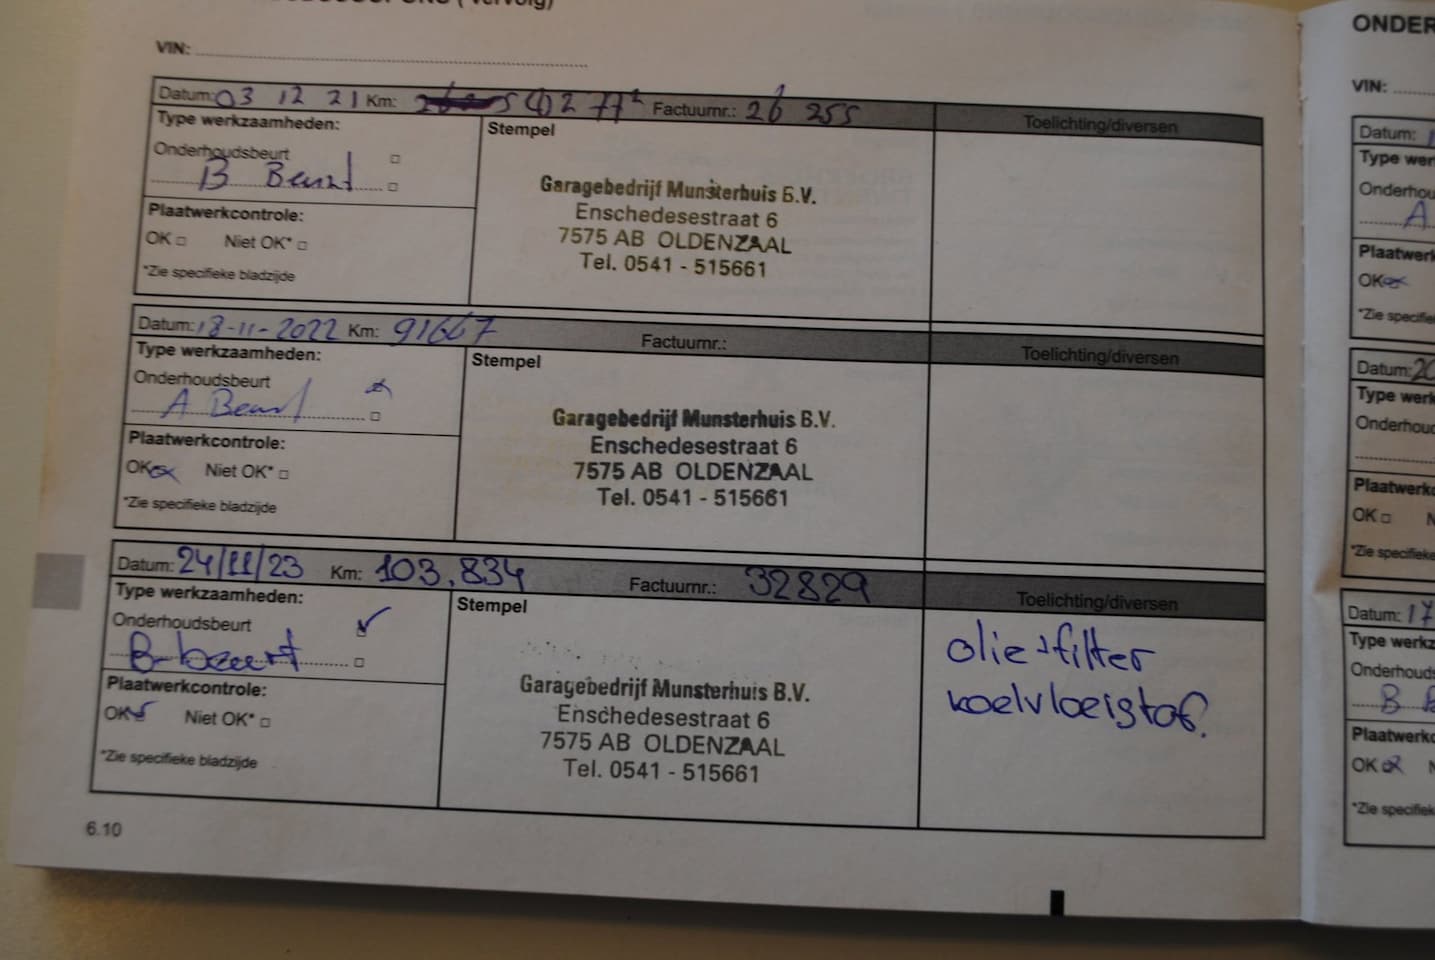 VIN:
Datum: 03 12 21 Km: Factuurnr.: 26 255
Type werkzaamheden: Stempel Toelichting/diversen
Onderhoudsbeurt □
B Beurt □
Plaatwerkcontrole:
OK □ Niet OK* □
*Zie specifieke bladzijde
Garagebedrijf Munsterhuis B.V.
Enschedesestraat 6
7575 AB OLDENZAAL
Tel. 0541 - 515661
Datum: 18-11-2022 Km: 91667 Factuurnr.:
Type werkzaamheden: Stempel Toelichting/diversen
Onderhoudsbeurt
A Beurt □
Plaatwerkcontrole:
OK Niet OK* □
*Zie specifieke bladzijde
Garagebedrijf Munsterhuis B.V.
Enschedesestraat 6
7575 AB OLDENZAAL
Tel. 0541 - 515661
Datum: 24/11/23 Km: 103,834 Factuurnr.: 32829
Type werkzaamheden: Stempel Toelichting/diversen
Onderhoudsbeurt
B-beurt □
Plaatwerkcontrole:
OK Niet OK* □
*Zie specifieke bladzijde
Garagebedrijf Munsterhuis B.V.
Enschedesestraat 6
7575 AB OLDENZAAL
Tel. 0541 - 515661
olie+filter
koelvloeistof.
6.10
ONDER
VIN:
Datum:
Type wer
Onderhou
A
Plaatwerk
OK
*Zie specifie
Datum: 20
Type werk
Onderhoud
Plaatwerkc
OK □ N
*Zie specifieke
Datum: 17
Type werkz
Onderhouds
B
Plaatwerkc
OK N
*Zie specifieke